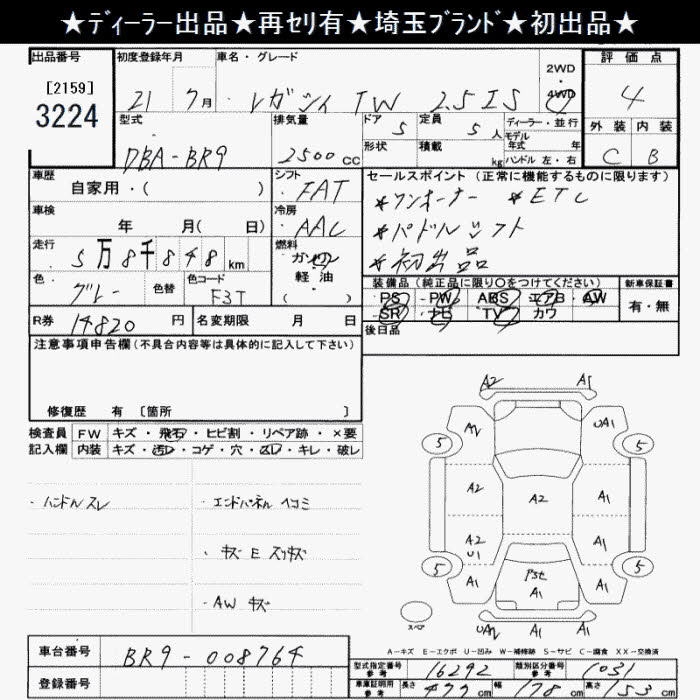 ★ディーラー出品★再セリ有★埼玉ブランド★初出品★
出品番号 初度登録年月 車名・グレード 2WD・4WD 評価点
[2159]
3224
21 7月 レガシィ TW 2.5IS 4
型式 排気量 ドア 5 定員 5人 ディーラー・並行 外装 内装
DBA-BR9 2500cc 形状 積載 kg モデル年式 年 ハンドル 左・右 C B
車歴 シフト セールスポイント (正常に機能するものに限ります)
自家用・( ) FAT ★ワンオーナー ★ETC
車検 冷房
年 月( 日) AAC ★パドルシフト
走行 5万8千848km 燃料 ガソリン 軽油 ( ) ★初出品
色 グレー 色替 色コード F3T
装備品 (純正品に限り○をつけてください) 新車保証書
PS PW ABS エアB AW 有・無
SR ナビ TV カワ
R券 14820円 名変期限 月 日 後日品
注意事項申告欄(不具合内容等は具体的に記入して下さい)
修復歴 有 [箇所 ]
検査員 FW キズ・飛石・ヒビ割・リペア跡・×要
記入欄 内装 キズ・汚レ・コゲ・穴・スレ・キレ・破レ
・ハンドルスレ ・エンドパネル ヘコミ
・キズ E スリキズ
・AW キズ
A2 A1
AV UA1
5 5
A2 A2 A1
A2 U1 A1
5 5
A1 Pst A1 A1
スペア
UAV A1 A1
A-キズ E-エクボ U-凹み W-補修跡 S-サビ C-腐食 XX-交換済
車台番号 BR9-008764
型式指定番号 参考 16292 類別区分番号 参考 1031
登録番号
車庫証明用 参考 長さ 477cm 幅 178cm 高さ 153cm